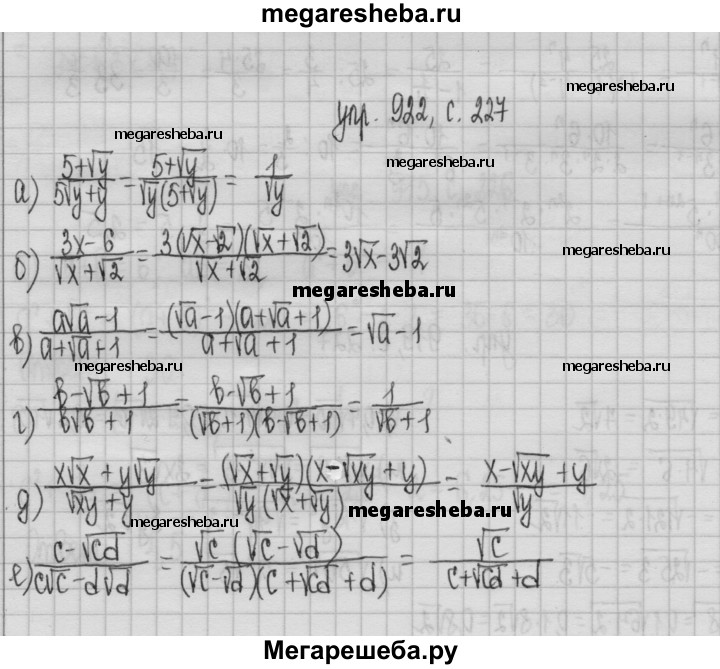 megaresheba.ru
megaresheba.ru
упр. 922, с. 227
megaresheba.ru
megaresheba.ru
а) (5+√y)/(5√y+y) = (5+√y)/(√y(5+√y)) = 1/√y
б) (3x-6)/(√x+√2) = (3(√x-√2)(√x+√2))/(√x+√2) = 3√x-3√2
megaresheba.ru
megaresheba.ru
в) (a√a-1)/(a+√a+1) = ((√a-1)(a+√a+1))/(a+√a+1) = √a-1
megaresheba.ru
megaresheba.ru
г) (b-√b+1)/(b√b+1) = (b-√b+1)/((√b+1)(b-√b+1)) = 1/(√b+1)
д) (x√x+y√y)/(√xy+y) = ((√x+√y)(x-√xy+y))/(√y(√x+√y)) = (x-√xy+y)/√y
megaresheba.ru
megaresheba.ru
е) (c-√cd)/(c√c-d√d) = (√c(√c-√d))/((√c-√d)(c+√cd+d)) = √c/(c+√cd+d)
Мегарешеба.ру